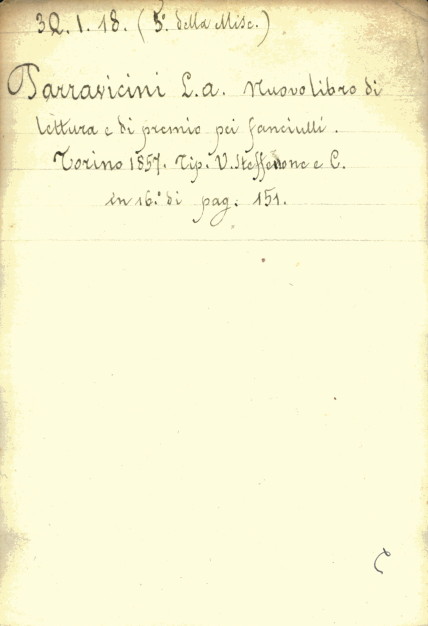 3Q. 1. 18. (5º della Misc.)
Parravicini L. a. Nuovo libro di
lettura e di premio pei fanciulli.
Torino 1857. Tip. V. Steffenone e C.
in 16.º di pag. 151.